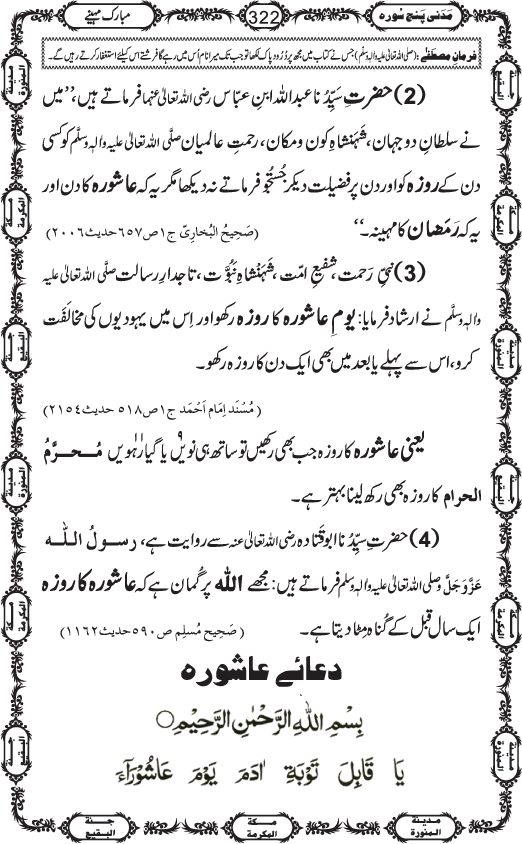 مَدَنی پَنج سُورہ
322
مبارک مہینے
فرمانِ مصطَفٰے : (صلی اللہ تعالیٰ علیہ والہٖ وسلّم) جس نے کتاب میں مجھ پر دُرُود پاک لکھا تو جب تک میرا نام اُس میں رہے گا فرشتے اس کیلئے استغفار کرتے رہیں گے۔
(2) حضرتِ سیِّدُنا عبد اللہ ابنِ عبّاس رضی اللہ تعالیٰ عنہما فرماتے ہیں، ’’میں
نے سلطانِ دو جہان، شَہَنشاہِ کون و مکان، رحمتِ عالمیان صلَّی اللہ تعالیٰ علیہ والہٖ وسلَّم کو کسی
دن کے روزہ کو اور دن پر فضیلت دیکر جُستُجو فرماتے نہ دیکھا مگر یہ کہ عاشورہ کا دن اور
یہ کہ رَمَضان کا مہینہ۔‘‘
(صَحِیحُ الْبُخارِیّ ج۱ ص۶۵۷ حدیث۲۰۰۶)
(3) نبیِّ رَحمت، شفیعِ امّت، شَہَنْشاہِ نُبُوَّت، تاجدارِ رسالت صلَّی اللہ تعالیٰ علیہ
والہٖ وسلَّم نے ارشاد فرمایا: یومِ عاشورہ کا روزہ رکھو اور اِس میں یہودیوں کی مخالَفَت
کرو، اس سے پہلے یا بعد میں بھی ایک دن کا روزہ رکھو۔
(مُسْنَد اِمَام اَحْمَد ج۱ ص۵۱۸ حدیث۲۱۵۴)
یعنی عاشورہ کا روزہ جب بھی رکھیں تو ساتھ ہی نویں یا گیارہویں مُحَرَّمُ
الحرام کا روزہ بھی رکھ لینا بہتر ہے۔
(4) حضرتِ سیِّدُنا ابو قتادہ رضی اللہ تعالیٰ عنہ سے روایت ہے، رسولُ اللہ
عَزَّوَجَلَّ و صلَّی اللہ تعالیٰ علیہ والہٖ وسلَّم فرماتے ہیں: مجھے اللہ پر گُمان ہے کہ عاشورہ کا روزہ
ایک سال قبل کے گُناہ مِٹا دیتا ہے۔
(صَحِیح مُسلِم ص۵۹۰ حدیث۱۱۶۲)
دعائے عاشورہ
بِسْمِ اللّٰهِ الرَّحْمٰنِ الرَّحِيْمِ ○
يَا قَابِلَ تَوْبَةِ اٰدَمَ يَوْمَ عَاشُوْرَآءَ
مدینۃ المنورۃ
مکۃ المکرمۃ
جنۃ البقیع